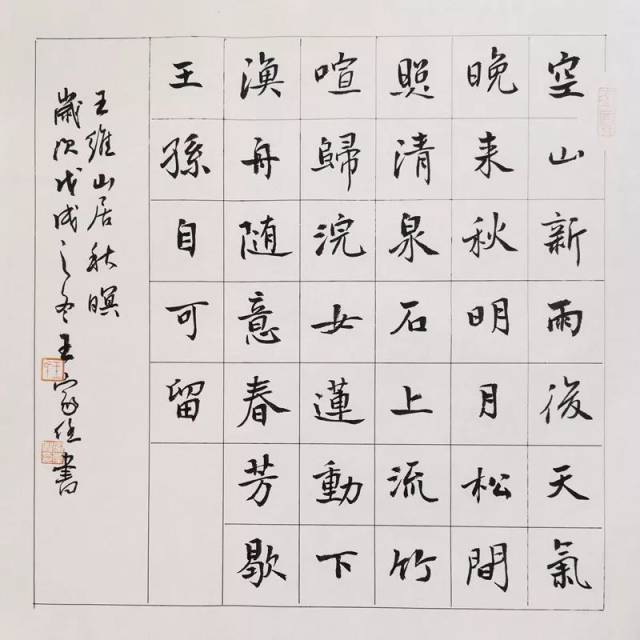 空山新雨後天氣
晚来秋明月松間
照清泉石上流竹
喧歸浣女蓮動下
渔舟随意春芳歇
王孫自可留
王維山居秋暝
歲次戊戌之冬王家書